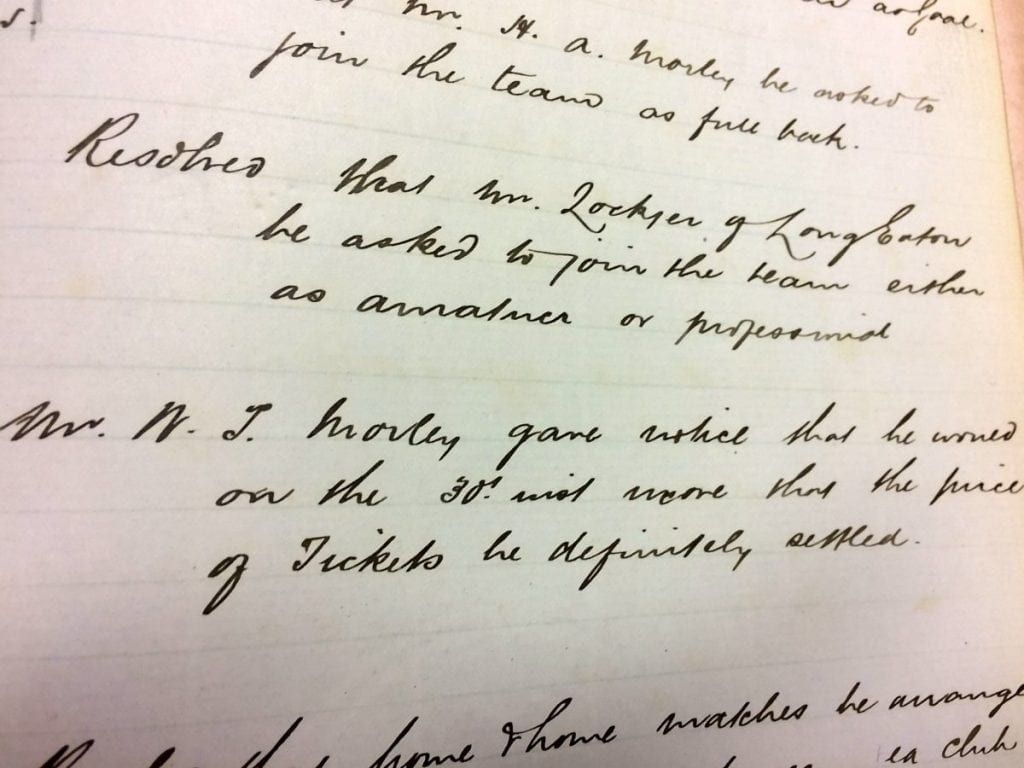 Mr. H. A. Morley be asked to
join the team as full back.
Resolved that Mr. Lockyer of Long Eaton
be asked to join the team either
as amatuer or professional
Mr. W. T. Morley gave notice that he would
on the 30th inst move that the price
of Tickets be definitely settled.
that home & home matches be arrange
club